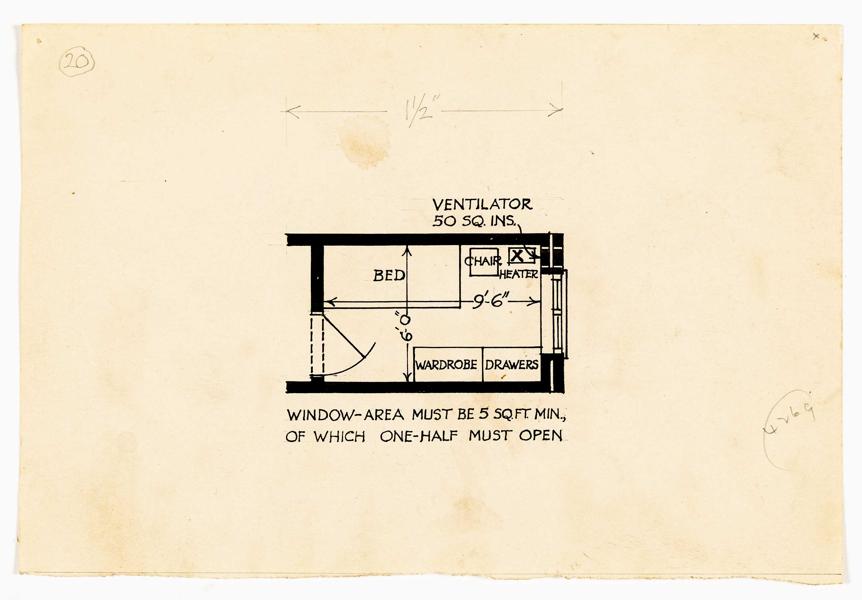 20
1½"
VENTILATOR
50 SQ. INS.
BED
CHAIR
X
HEATER
9'-6"
6'-0"
WARDROBE
DRAWERS
WINDOW-AREA MUST BE 5 SQ.FT. MIN.,
OF WHICH ONE-HALF MUST OPEN